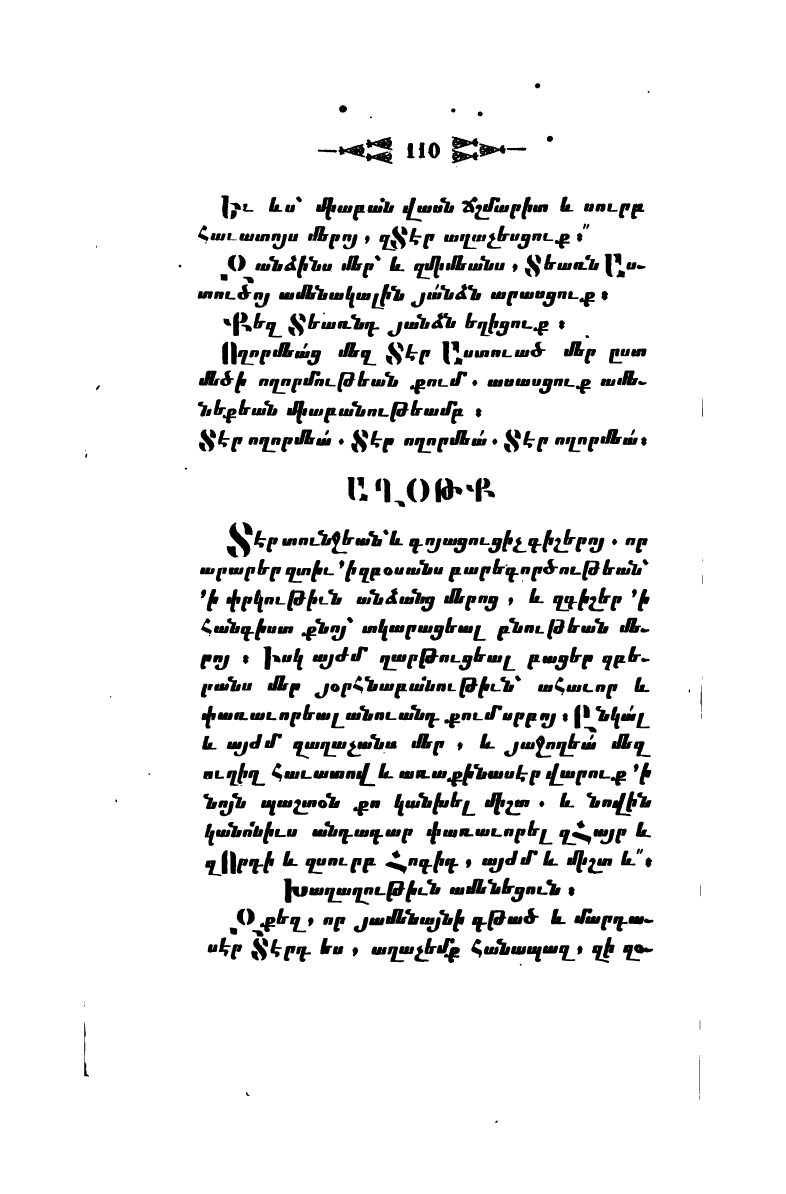 110
Եւ ևս՝ միաբան վասն ճշմարիտ և սուրբ
հաւատոյս մերոյ, զՏէր աղաչեսցուք։
Զանձինս մեր՝ և զմիմեանս, Տեառն Աս-
տուծոյ ամենակալին յանձն արասցուք։
Քեզ Տեառնդ յանձն եղիցուք։
Ողորմեա՛ց մեզ Տէր Աստուած մեր ըստ
մեծի ողորմութեան քում. ասասցուք ամե-
նեքեան միաբանութեամբ։
Տէր ողորմեա՛. Տէր ողորմեա՛. Տէր ողորմեա՛։
ԱՂՕԹՔ
Տէր տունջեան՝ և գոյացուցիչ գիշերոյ. որ
արարեր զտիւ ՚ի զբօսանս բարեգործութեան՝
՚ի փրկութիւն անձանց մերոց, և զգիշեր ՚ի
հանգիստ քնոյ՝ տկարացեալ բնութեան մե-
րոյ։ Իսկ այժմ զարթուցեալ բացեր զբե-
րանս մեր յօրհնաբանութիւն՝ ահաւոր և
փառաւորեալ անուանդ քում սրբոյ։ Ընկա՛լ
և այժմ զաղաչանս մեր, և յաջողեա՛ մեզ
ուղիղ հաւատով և առաքինասէր վարուք ՚ի
նոյն պաշտօն քո կանխել միշտ. և նովին
կանոնիւս անդադար փառաւորել զՀայր և
զՈրդի և զսուրբ Հոգիդ, այժմ և միշտ և՟։
Խաղաղութիւն ամենեցուն։
Զքեզ, որ յամենայնի գթած և մարդա-
սէր Տէրդ ես, աղաչեմք հանապազ, զի զօ-